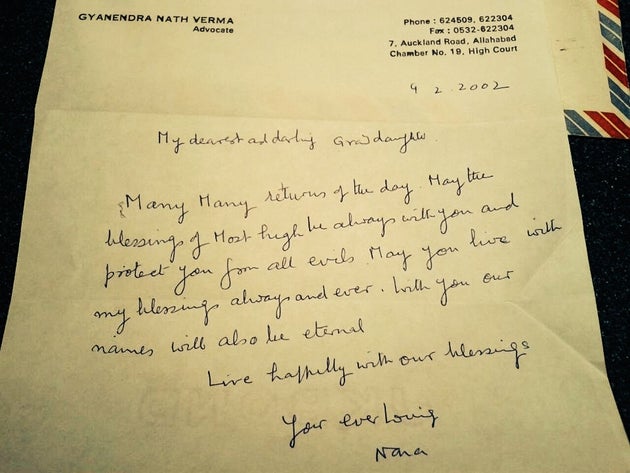 GYANENDRA NATH VERMA
Advocate
Phone : 624509, 622304
Fax : 0532-622304
7, Auckland Road, Allahabad
Chamber No. 19, High Court
9 2 . 2002
My dearest ad darling Grandaughter.
Many Many returns of the day. May the
blessings of Most high be always with you and
protect you from all evils. May you live with
my blessings always and ever. With you our
names will also be eternal
Live happily with our blessings
Your ever loving
Nana